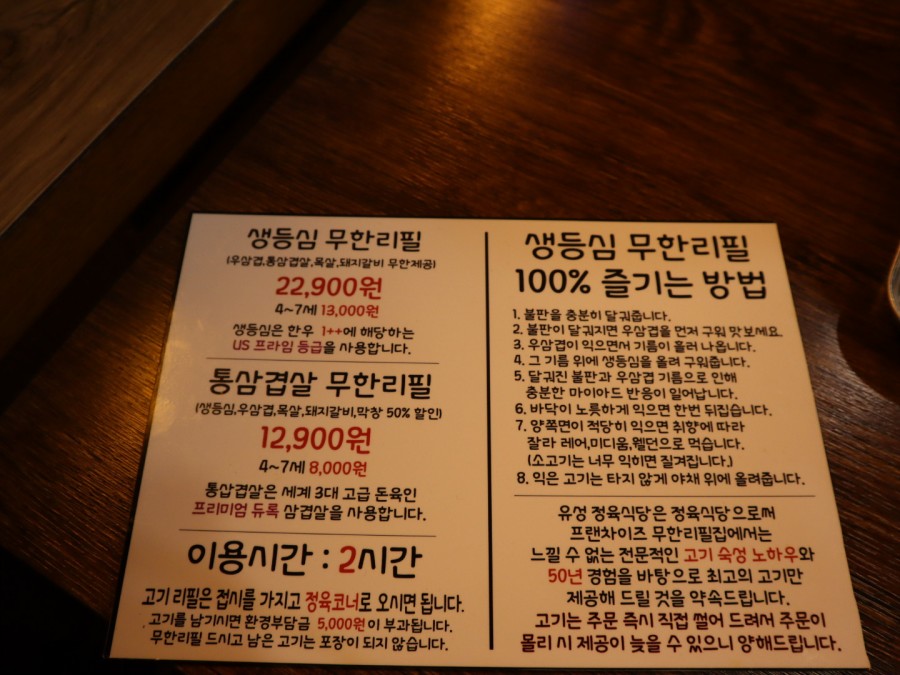 생등심 무한리필
(우삼겹,통삼겹살,목살,돼지갈비 무한제공)
22,900원
4~7세 13,000원
생등심은 한우 1++에 해당하는
US 프라임 등급을 사용합니다.
통삼겹살 무한리필
(생등심,우삼겹,목살,돼지갈비,막창 50% 할인)
12,900원
4~7세 8,000원
통삽겹살은 세계 3대 고급 돈육인
프리미엄 듀록 삼겹살을 사용합니다.
이용시간 : 2시간
고기 리필은 접시를 가지고 정육코너로 오시면 됩니다.
고기를 남기시면 환경부담금 5,000원이 부과됩니다.
무한리필 드시고 남은 고기는 포장이 되지 않습니다.
생등심 무한리필
100% 즐기는 방법
1. 불판을 충분히 달궈줍니다.
2. 불판이 달궈지면 우삼겹을 먼저 구워 맛보세요.
3. 우삼겹이 익으면서 기름이 올러 나옵니다.
4. 그 기름 위에 생등심을 올려 구워줍니다.
5. 달궈진 불판과 우삼겹 기름으로 인해
충분한 마이아드 반응이 일어납니다.
6. 바닥이 노릇하게 익으면 한번 뒤집습니다.
7. 양쪽면이 적당히 익으면 취향에 따라
잘라 레어,미디움,웰던으로 먹습니다.
(소고기는 너무 익히면 질겨집니다.)
8. 익은 고기는 타지 않게 야채 위에 올려줍니다.
유성 정육식당은 정육식당으로써
프랜차이즈 무한리필집에서는
느낄 수 없는 전문적인 고기 숙성 노하우와
50년 경험을 바탕으로 최고의 고기만
제공해 드릴 것을 약속드립니다.
고기는 주문 즉시 직접 썰어 드려서 주문이
몰리 시 제공이 늦을 수 있으니 양해드립니다.